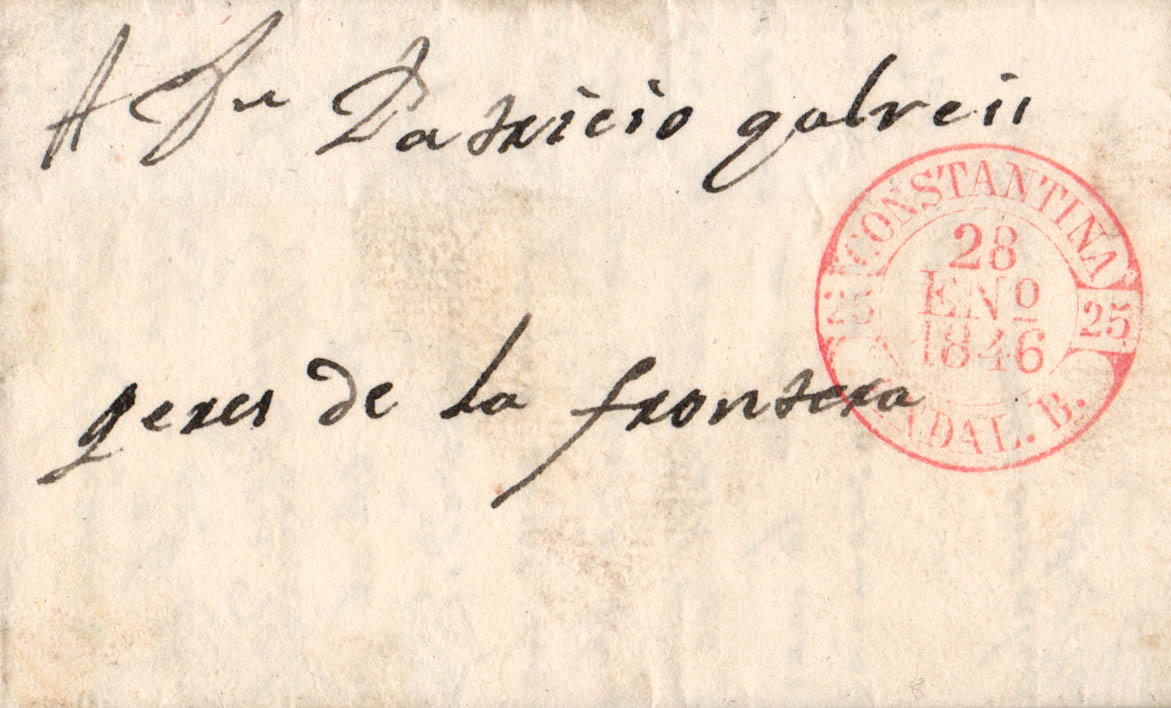 A Sr Patricio galveis
geres de la frontera
CONSTANTINA
28
ENº
1846
25 25
ANDAL. B.